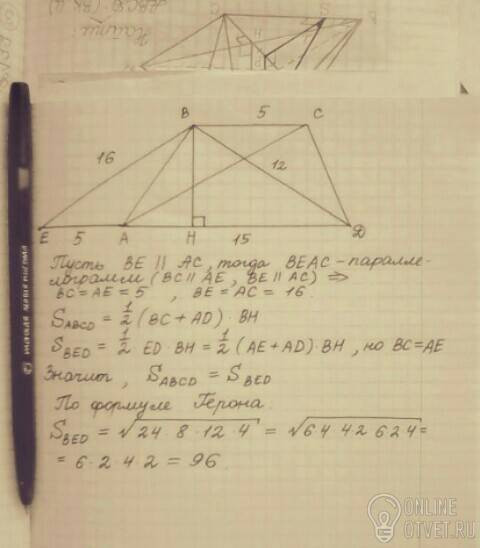 Найти:
B 5 C
16 12
E 5 A H 15 D
Пусть BE || AC, тогда BEAC - паралле-
лограмм (BC || AE, BE || AC) ⇒
BC = AE = 5 , BE = AC = 16.
S_ABCD = 1/2 (BC + AD) · BH
S_BED = 1/2 ED · BH = 1/2 (AE + AD) · BH , но BC = AE
Значит, S_ABCD = S_BED
По формуле Герона:
S_BED = √(24 · 8 · 12 · 4) = √(6·4 4·2 6·2 4) =
= 6 · 2 · 4 · 2 = 96
ONLINE
OTVET.RU